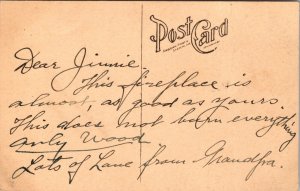 Post Card
Dear Jinnie.
This fireplace is
almost, as good as yours.
This does not burn everything
only Wood
Lots of Love from Grandpa.